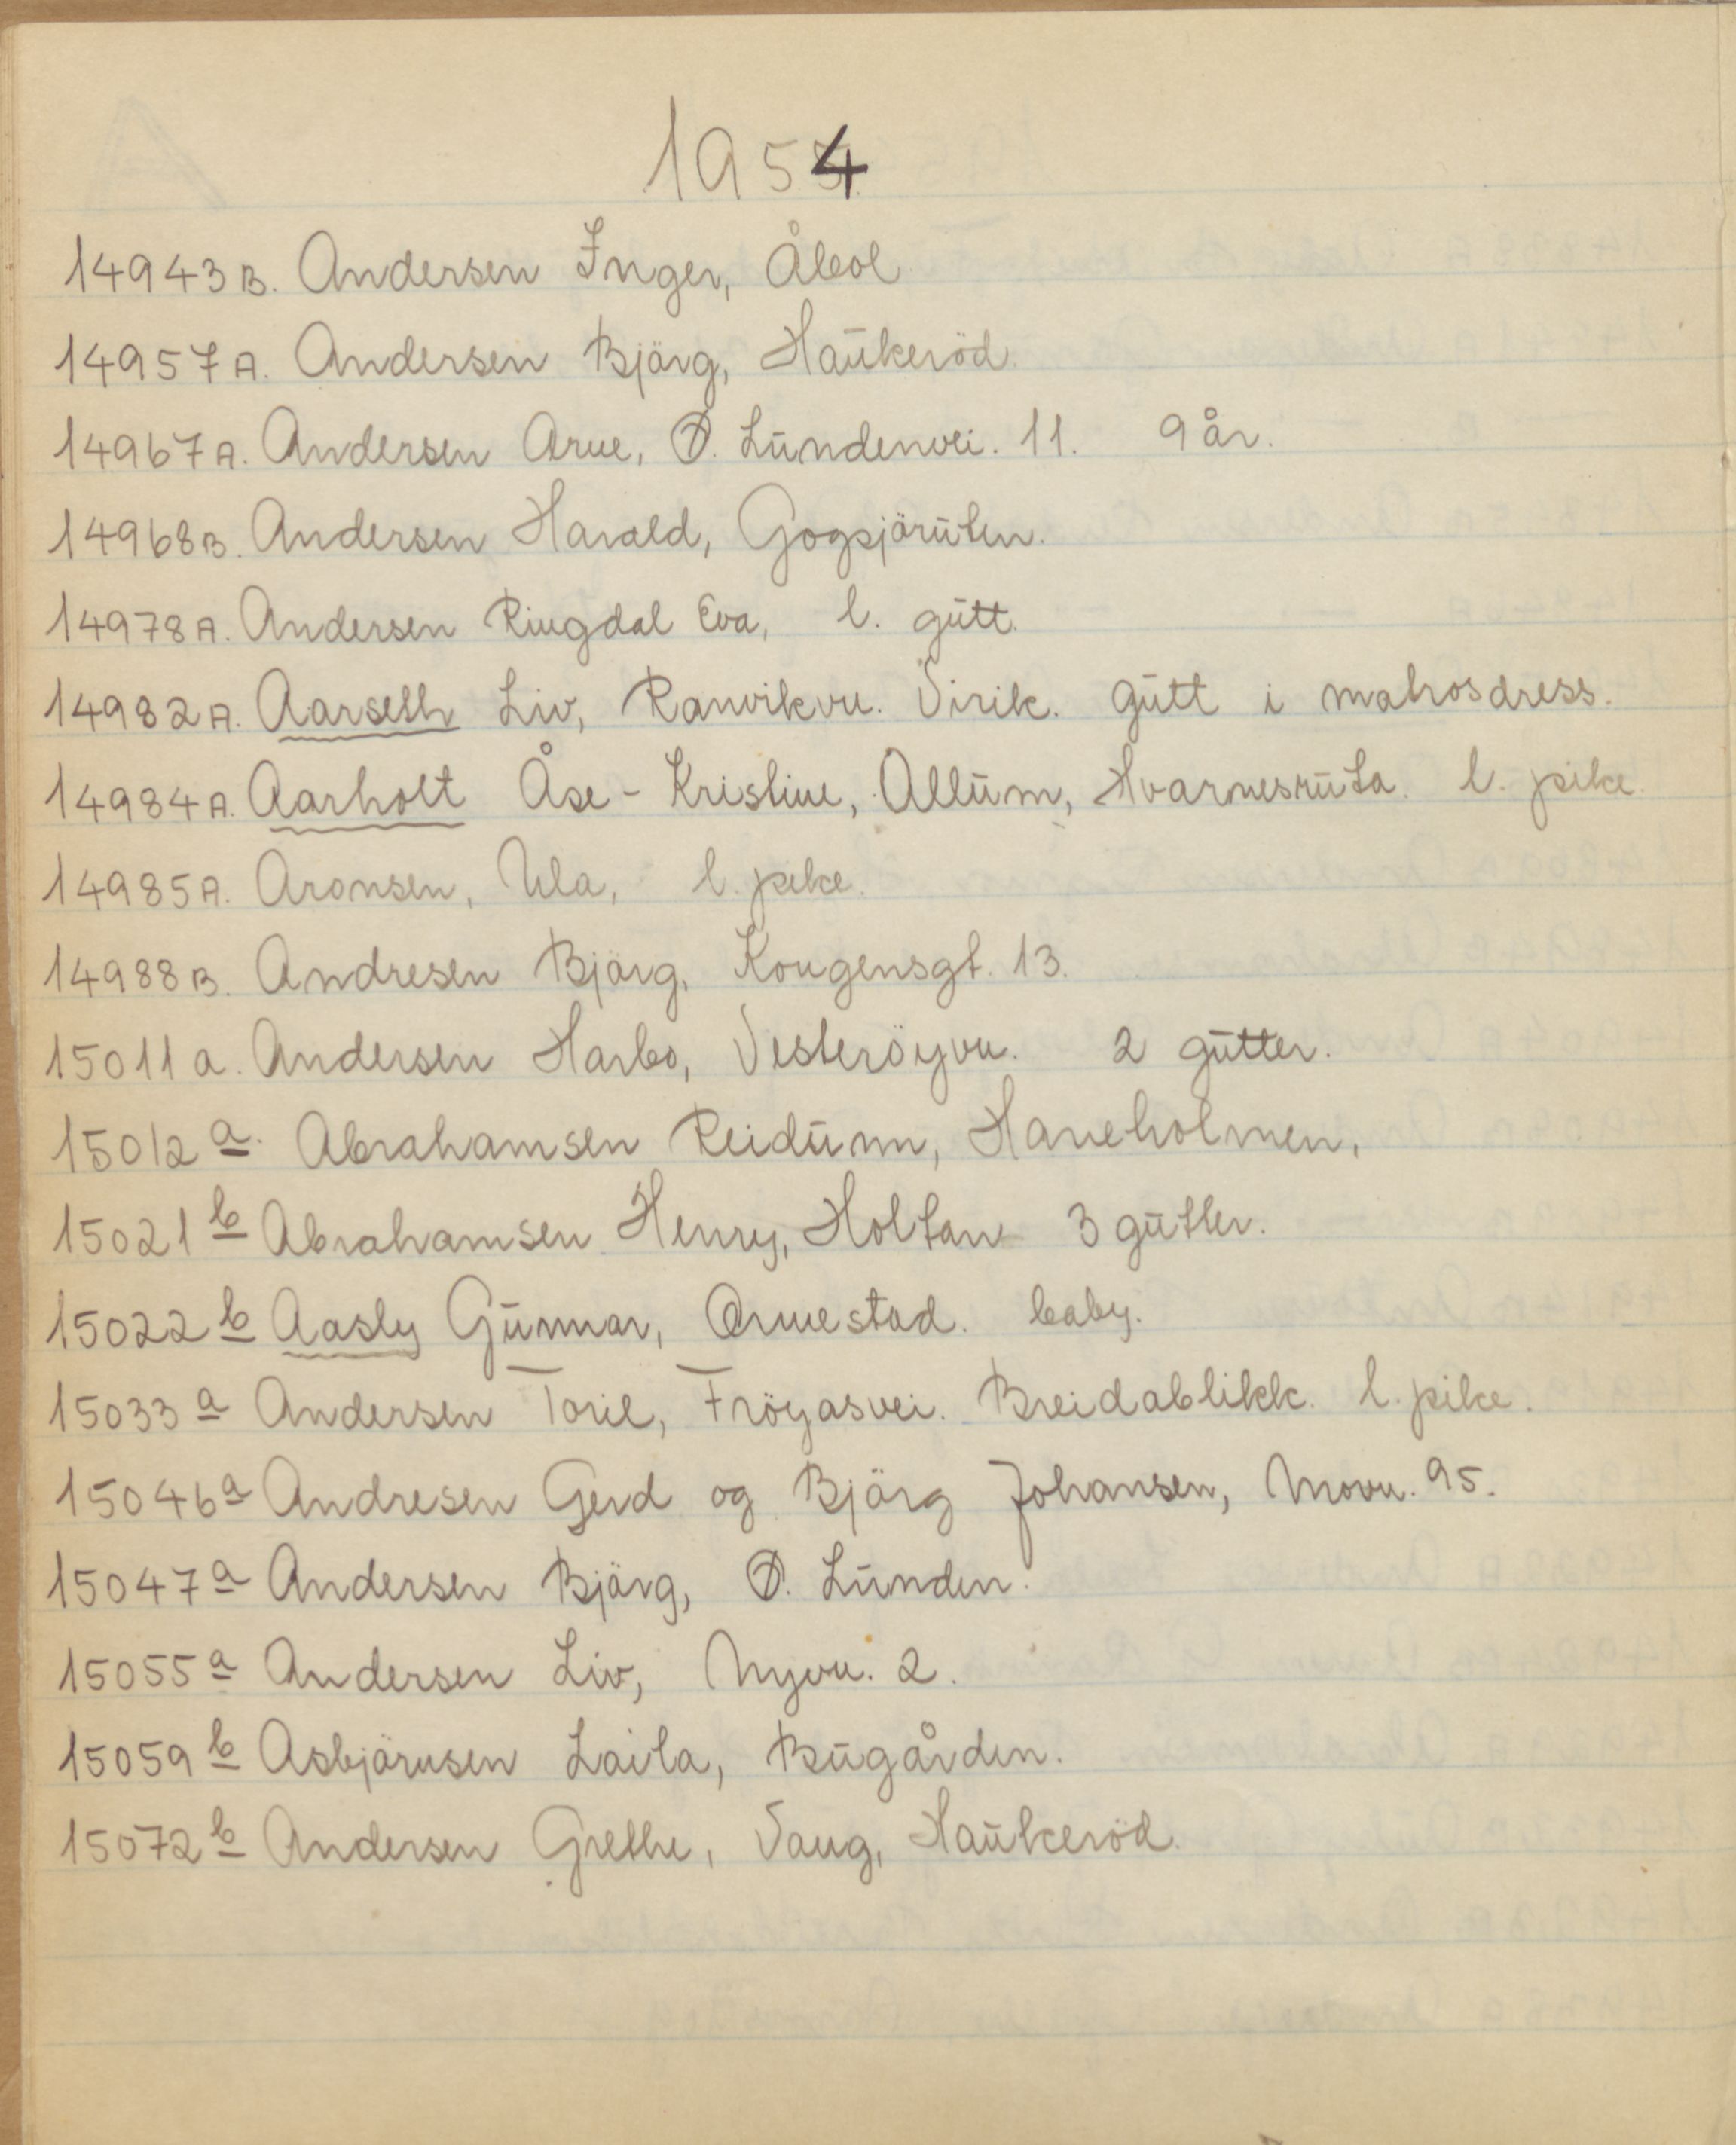 1954
14943B. Andersen Inger, Åbol
14957A. Andersen Bjärg, Haukeröd.
14967A. Andersen Arne, Ø. Lundenvei. 11. 9 år.
14968B. Andersen Harald, Gogsjäruten.
14978A. Andersen Ringdal Eva, l. gutt.
14982A. Aarseth Liv, Ranvikvn. Virik. gutt i matrosdress.
14984A. Aarholt Åse-Kristine, Allum, Hvarnesruta. l. pike.
14985A. Aronsen, Ula, l. pike.
14988B. Andresen Bjärg, Kongensgt. 13.
15011a. Andersen Harbo, Vesteröyvn. 2 gutter.
15012a. Abrahamsen Reidunn, Haneholmen,
15021b Abrahamsen Henry, Holtan 3 gutter.
15022b Aasly Gunnar, Ormestad. baby.
15033a Andersen Toril, Fröyasvei. Breidablikk. l. pike.
15046a Andresen Gerd og Bjärg Johansen, Movn. 95.
15047a Andersen Bjärg, Ø. Lunden.
15055a Andersen Liv, Nyvn. 2.
15059b Asbjärnsen Laila, Bugården.
15072b Andersen Grethe, Vang, Haukeröd.